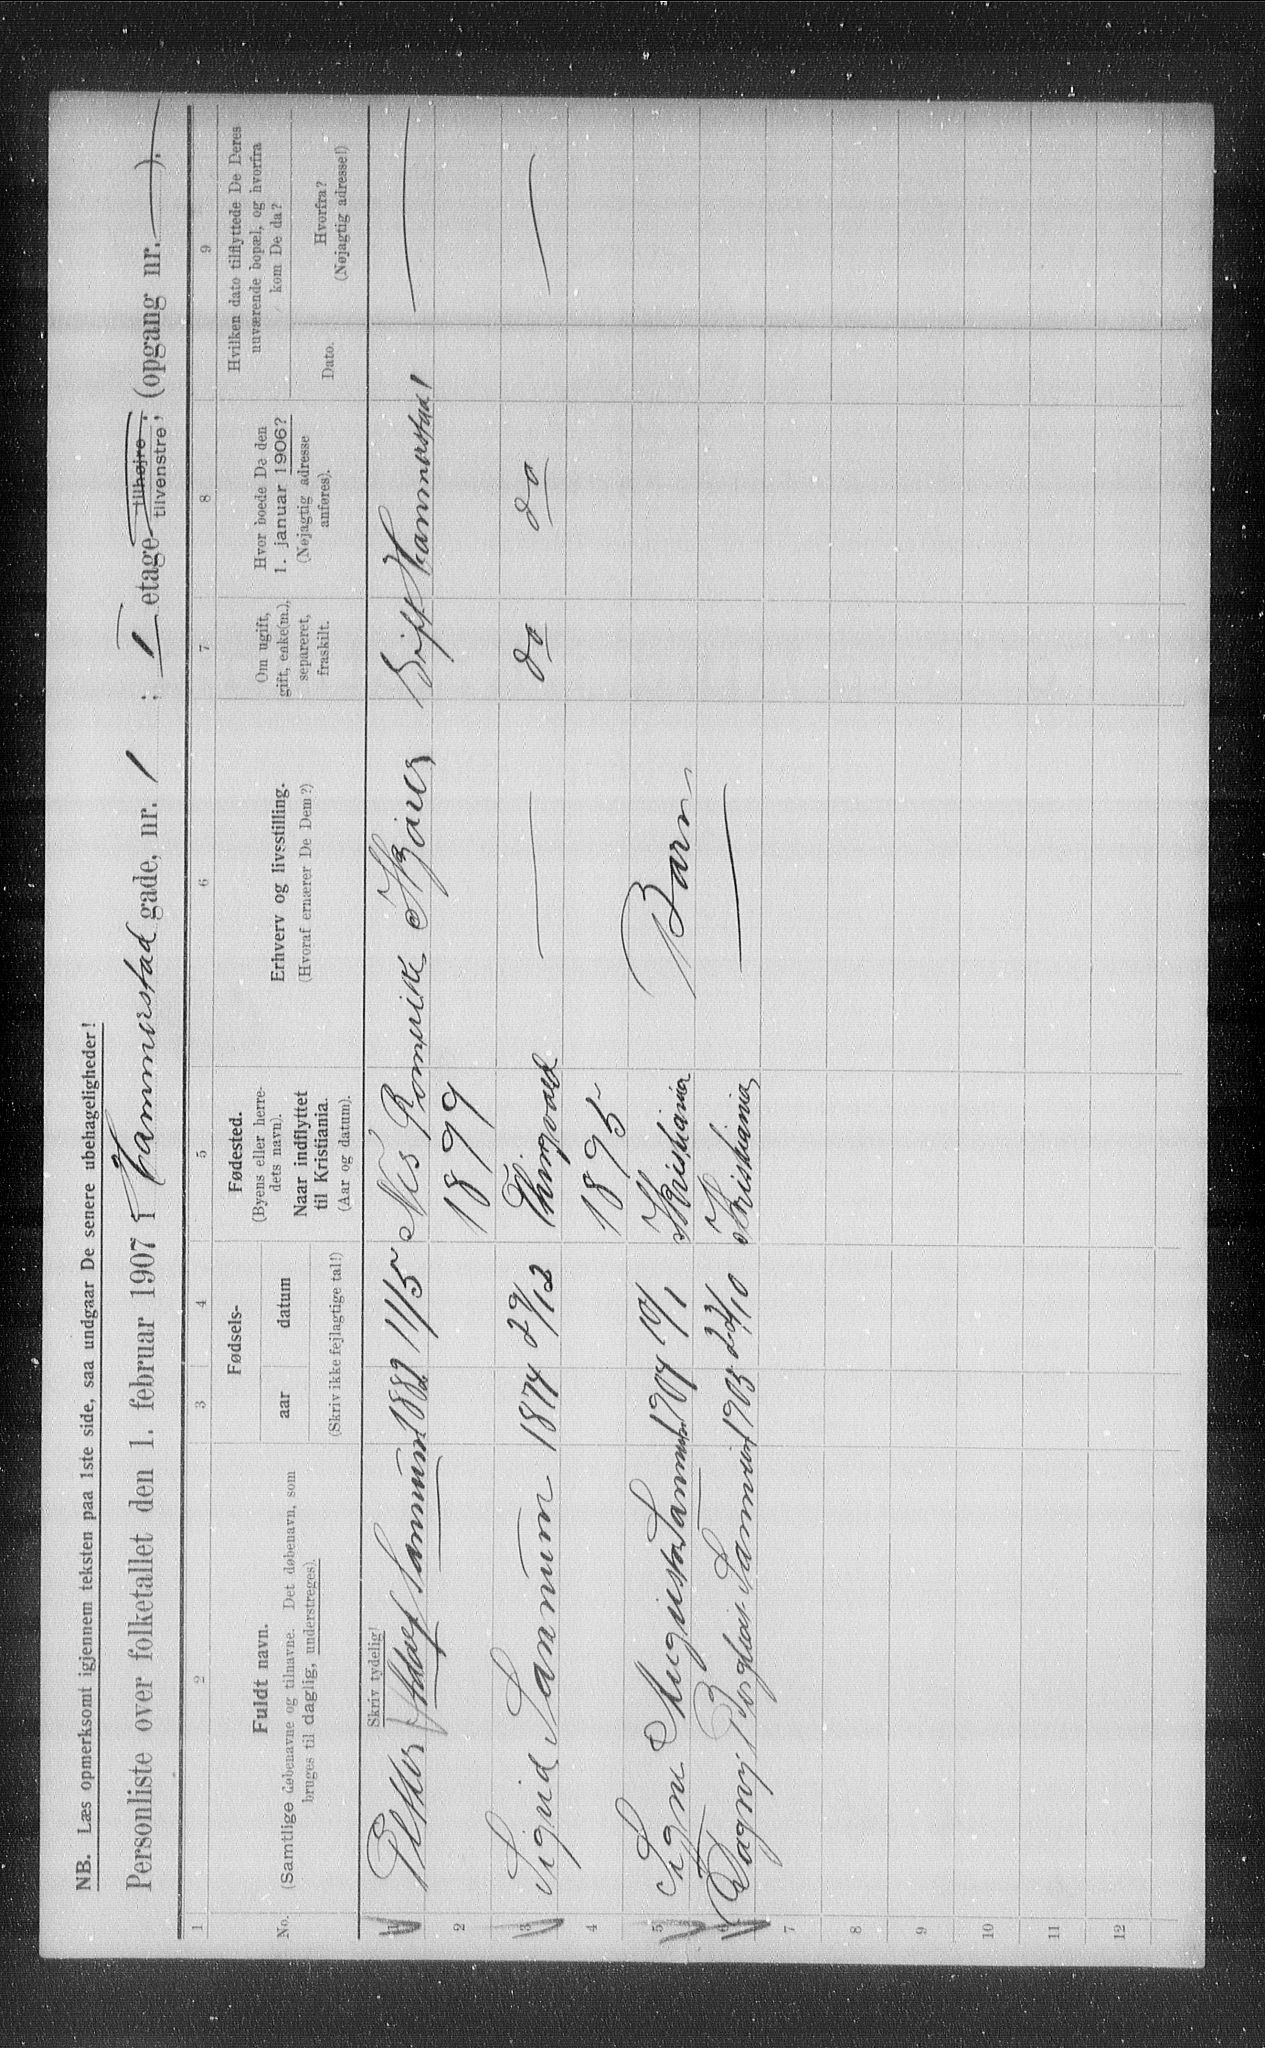 NB. Læs opmerksomt igjennem teksten paa 1ste side, saa undgaar De senere ubehageligheder!
Personliste over folketallet den 1. februar 1907 i Hammerstad gade, nr. 1 ; I etage tilhøjre tilvenstre; (opgang nr. — ).
1 2 3 4 5 6 7 8 9
No.
Fuldt navn.
(Samtlige døbenavne og tilnavne. Det døbenavn, som
bruges til daglig, understreges).
Skriv tydelig!
Fødsels-
aar datum
(Skriv ikke fejlagtige tal!)
Fødested.
(Byens eller herre-
dets navn).
Naar indflyttet
til Kristiania.
(Aar og datum).
Erhverv og livsstilling.
(Hvoraf ernærer De Dem?)
Om ugift,
gift, enke(m.),
separeret,
fraskilt.
Hvor boede De den
1. januar 1906?
(Nøjagtig adresse
anføres).
Hvilken dato tilflyttede De Deres
nuværende bopæl, og hvorfra
kom De da?
Dato.
Hvorfra?
(Nøjagtig adresse!)
1 Petter Adolf Sannum 1882 11/5 Nes Romerike Gift Hammerstad 1 —
2 1899
3 Sigrid Sannum 1874 29/12 Thingvold — do do —
4 1895
5 Signe Augusta Sannum 1904 19/1 Kristiania Barn
6 Dagny Borghild Sannum 1905 22/10 Kristiania —
7
8
9
10
11
12